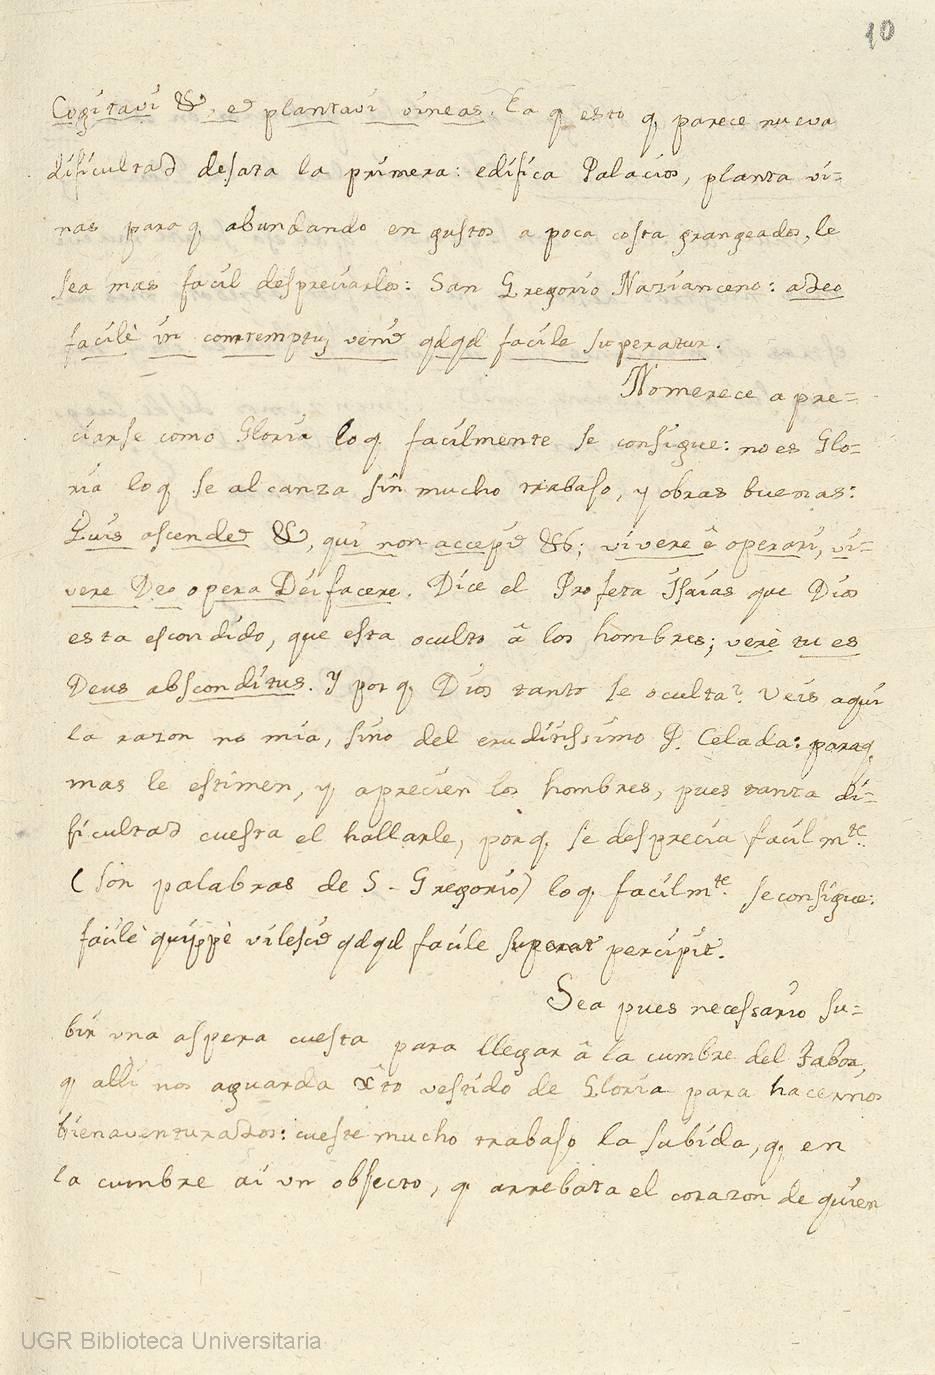 10
Cogitavi &, et plantavi vineas. Ea q esto q parece nueva
dificultad desata la primera: edifica Palacios, planta vi=
nas para q abundando en gustos a poca costa grangeados, le
sea mas facil despreciarlos: San Gregorio Nazianceno: adeo
facilè in contemptuz venit qdqd facile superatur.
No merece apre=
ciarse como Gloria lo q facilmente se consigue: no es Glo=
ria lo q se alcanza sin mucho trabajo, y obras buenas:
Quis ascendet &, qui non accepit &c; vivere ê operari, vi=
vere Deo opera Dei facere. Dice el Profeta Isaias que Dios
esta escondido, que esta oculto â los hombres; verè tu es
Deus absconditus. Y por q Dios tanto se oculta? Veis aqui
la razon no mia, sino del eruditissimo P. Celada: para q
mas le estimen, y aprecien los hombres, pues tanta di=
ficultad cuesta el hallarle, por q se desprecia facilmte.
(son palabras de S. Gregorio) lo q facilmte. se consigue:
facilè quippè vilescit qdqd facile superat percipit.
Sea pues necessario su=
bir una aspera cuesta para llegar â la cumbre del Tabor,
q alli nos aguarda Xto vestido de Gloria para hacernos
bienaventurados: cueste mucho trabajo la subida, q en
la cumbre ai un objecto, q arrebata el corazon de quien
UGR Biblioteca Universitaria